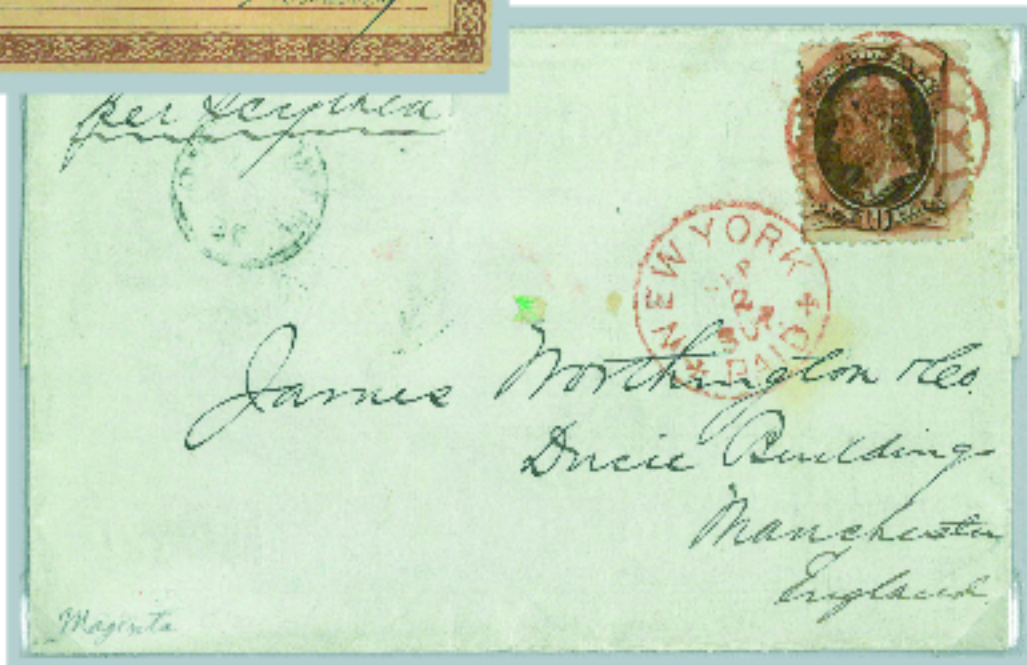 per Scythia
NEW YORK
2
PAID
James Worthington & Co.
Ducie Buildings
Manchester
England
Magenta